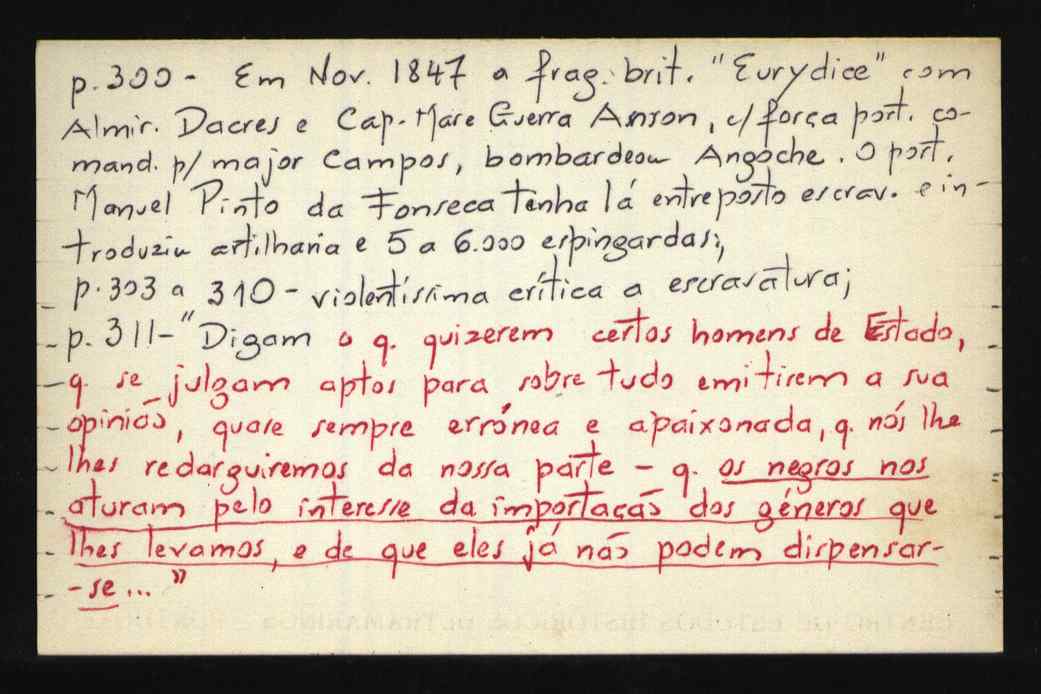 p.300 - Em Nov. 1847 a frag. brit. "Eurydice" com
Almir. Dacres e Cap. Mare Guerra Anson, c/ força port. co-
mand. p/ major Campos, bombardeou Angoche. O port.
Manuel Pinto da Fonseca tinha lá entreposto escrav. e in-
troduziu artilharia e 5 a 6.000 espingardas;
p.303 a 310 - violentíssima crítica a escravatura;
p. 311 - "Digam o q. quizerem certos homens de Estado,
q. se julgam aptos para sobre tudo emitirem a sua
opinião, quase sempre errónea e apaixonada, q. nós lhe
lhes redarguiremos da nossa parte - q. os negros nos
aturam pelo interesse da importação dos géneros que
lhes levamos, e de que eles já não podem dispensar-
-se..."